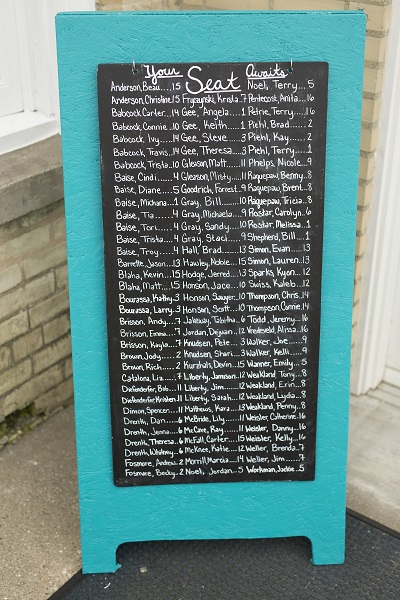 Your Seat Awaits
Anderson, Beau....15
Anderson, Christine 15
Babcock, Carter...14
Babcock, Connie..10
Babcock, Ivy.....14
Babcock, Travis..14
Babcock, Trista..10
Baise, Cindi......4
Baise, Diane.....5
Baise, Michana..1
Baise, Tia........4
Baise, Tori......4
Baise, Trista....4
Baise, Troy.....4
Barrette, Jason...13
Blaha, Kevin...15
Blaha, Matt....15
Bourassa, Kathy..3
Bourassa, Larry..3
Brisson, Andy....7
Brisson, Emma...7
Brisson, Kayla...7
Brown, Jody.....2
Brown, Rich.....2
Catalona, Liz.....7
Diefenderfer, Bob...11
Diefenderfer, Kristen 11
Dimon, Spencer....11
Drenth, Dan.....6
Drenth, Jenna...6
Drenth, Theresa..6
Drenth, Whitney..6
Fosmore, Andrea..2
Fosmore, Becky..2
Fryczynski, Krista..7
Gee, Angela.....1
Gee, Keith......1
Gee, Steve......3
Gee, Theresa...3
Gleason, Matt....11
Gleason, Misty....11
Goodrich, Forrest..9
Gray, Bill......10
Gray, Michaela..9
Gray, Sandy....10
Gray, Staci.....9
Hall, Brad......13
Hawley, Noble...15
Hodge, Jerred...13
Honson, Jace....10
Honson, Sawyer..10
Honson, Scott...10
Jakeway, Tabitha..6
Jordan, Dejuan...12
Knudsen, Pete...3
Knudsen, Shari..3
Kurzhals, Devin..15
Liberty, Jamison..12
Liberty, Jim.....12
Liberty, Sarah...12
Matthews, Kara..13
McBride, Lily....11
McCave, Ray....11
McFall, Carter...15
McKnee, Katie...12
Morrill, Marcia...14
Noel, Jordan...5
Noel, Terry....5
Pentecost, Anita..16
Petrie, Terry...16
Piehl, Brad.....2
Piehl, Kay......2
Piehl, Terry....1
Phelps, Nicole...9
Raquepaw, Benny..8
Raquepaw, Brent..8
Raquepaw, Tricia..8
Rostar, Carolyn..6
Rostar, Melissa..1
Shepherd, Bill...1
Simon, Evan....13
Simon, Lauren..13
Sparks, Kyon...12
Swiss, Kaleb...12
Thompson, Chris..14
Thompson, Connie..14
Todd, Jeremy....16
Vredeveld, Alissa..16
Walker, Joe.....9
Walker, Kelli....9
Wanner, Emily...5
Weakland, Tony..8
Weakland, Erin...8
Weakland, Lydia..8
Weakland, Penny..8
Weisler, Catherine.16
Weisler, Danny..16
Weisler, Kelly...16
Weller, Brenda..7
Weller, Jim.....7
Workman, Jackie..5